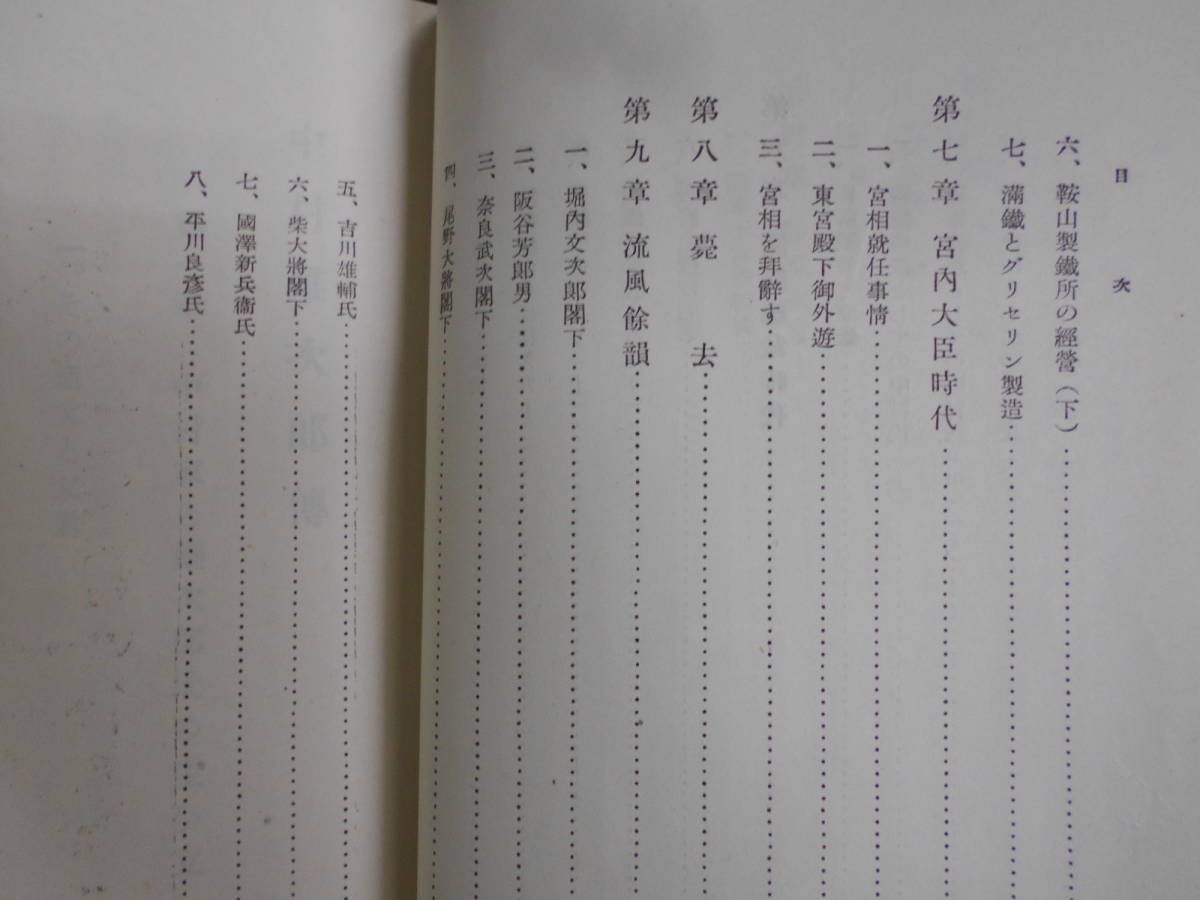 目次
六、鞍山製鐵所の經營(下)
七、滿鐵とグリセリン製造
第七章 宮內大臣時代
一、宮相就任事情
二、東宮殿下御外遊
三、宮相を拜辭す
第八章 薨去
第九章 流風餘韻
一、堀內文次郞閣下
二、阪谷芳郞男
三、奈良武次閣下
四、尾野大將閣下
五、吉川雄輔氏
六、柴大將閣下
七、國澤新兵衞氏
八、平川良彥氏